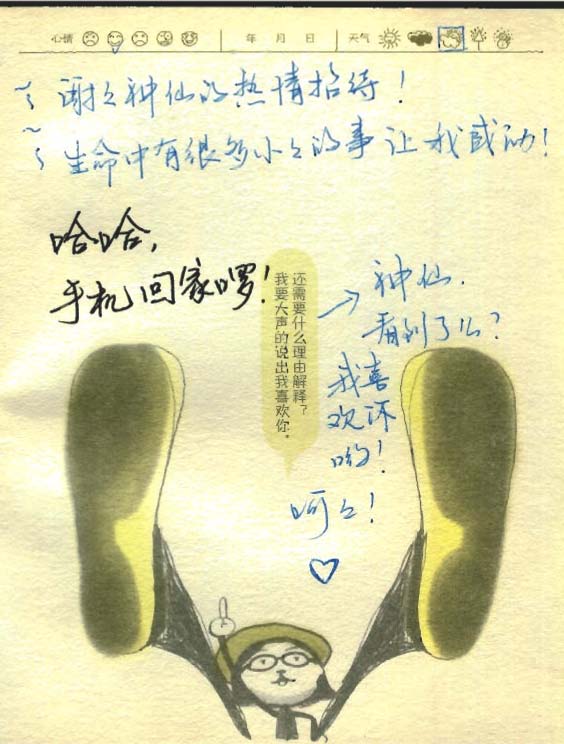 心情 年 月 日 天气
谢々神仙的热情招待!
生命中有很多小々的事让我感动!
哈哈,
手机回家啰!
还需要什么理由解释?
我要大声的说出我喜欢你。
神仙.
看到了么?
我喜
欢你
哟!
呵々!